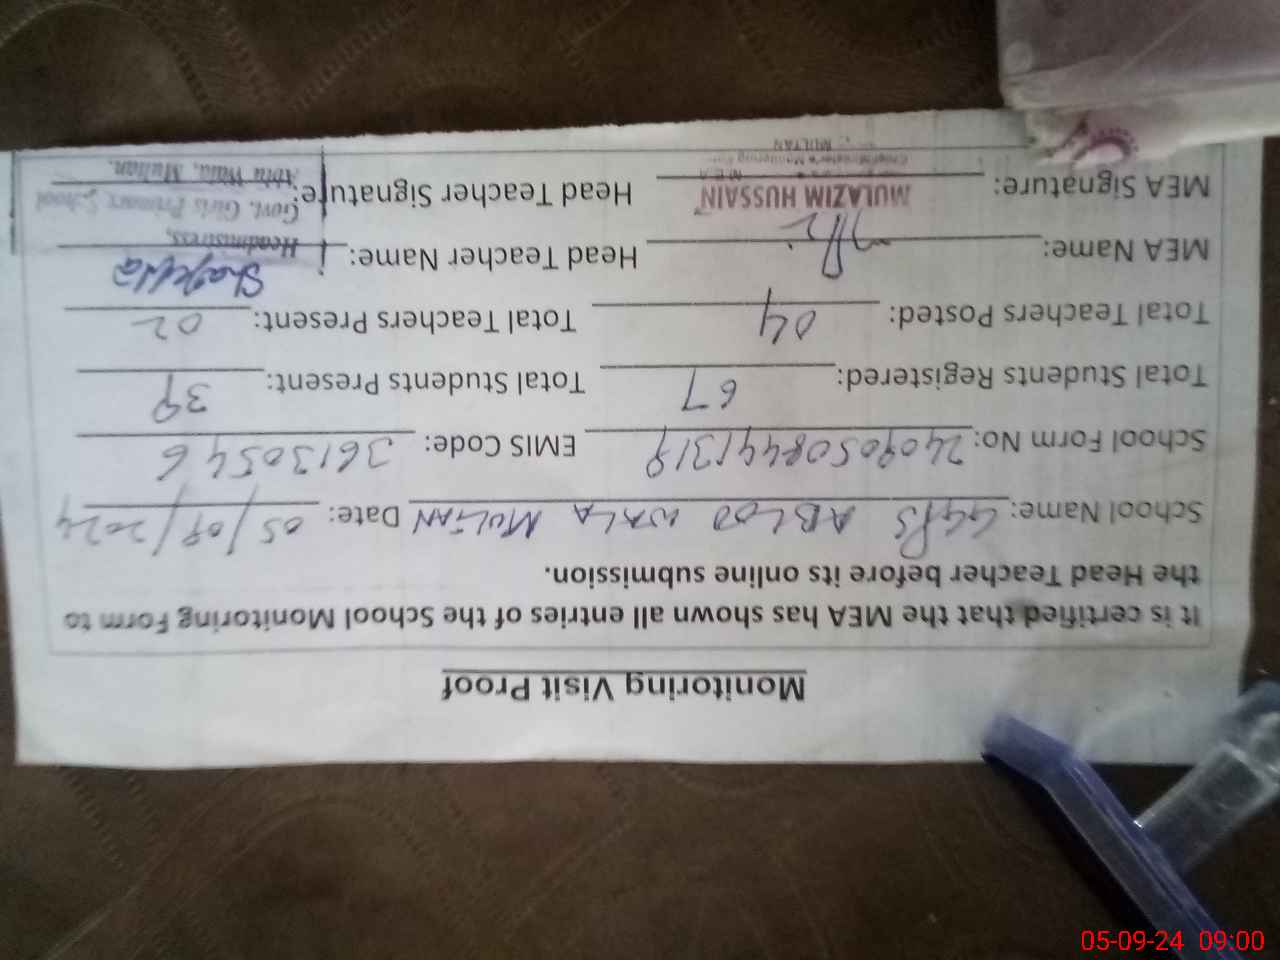 Monitoring Visit Proof
It is certified that the MEA has shown all entries of the School Monitoring Form to
the Head Teacher before its online submission.
School Name: GGPS ABLOO WALA MULTAN Date: 05/09/2024
School Form No: 2409050844131 EMIS Code: 36130546
Total Students Registered: 67 Total Students Present: 39
Total Teachers Posted: 04 Total Teachers Present: 02
MEA Name: Head Teacher Name: Shagufta
MEA Signature: MULAZIM HUSSAIN Head Teacher Signature:
M E A
Chief Minister's Monitoring
MULTAN
Headmistress,
Govt. Girls Primary School
Ablu Wala, Multan.
05-09-24 09:00